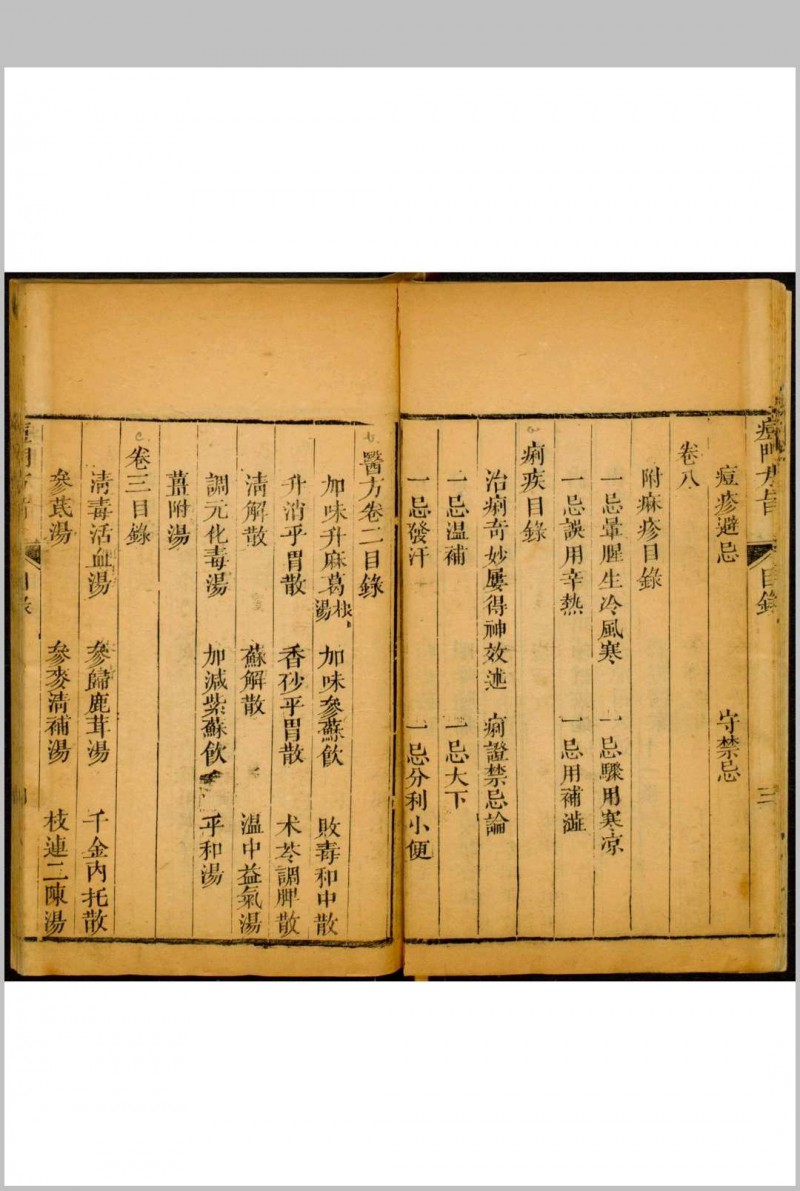 目錄
三
痘疹避忌　守禁忌
卷八
附麻疹目錄
一忌葷腥生冷風寒　一忌驟用寒凉
一忌誤用辛熱　一忌用補澁
痢疾目錄
治痢奇妙屢得神效述　痢證禁忌論
一忌溫補　一忌大下
一忌發汗　一忌分利小便
醫方卷二目錄
加味升麻葛根湯　加味參蘇飲　敗毒和中散
升消平胃散　香砂平胃散　术苓調脾散
淸解散　蘇解散　溫中益氣湯
調元化毒湯　加減紫蘇飲　平和湯
薑附湯
卷三目錄
淸毒活血湯　參歸鹿茸湯　千金內托散
參芪湯　參麥淸補湯　枝連二陳湯
目錄